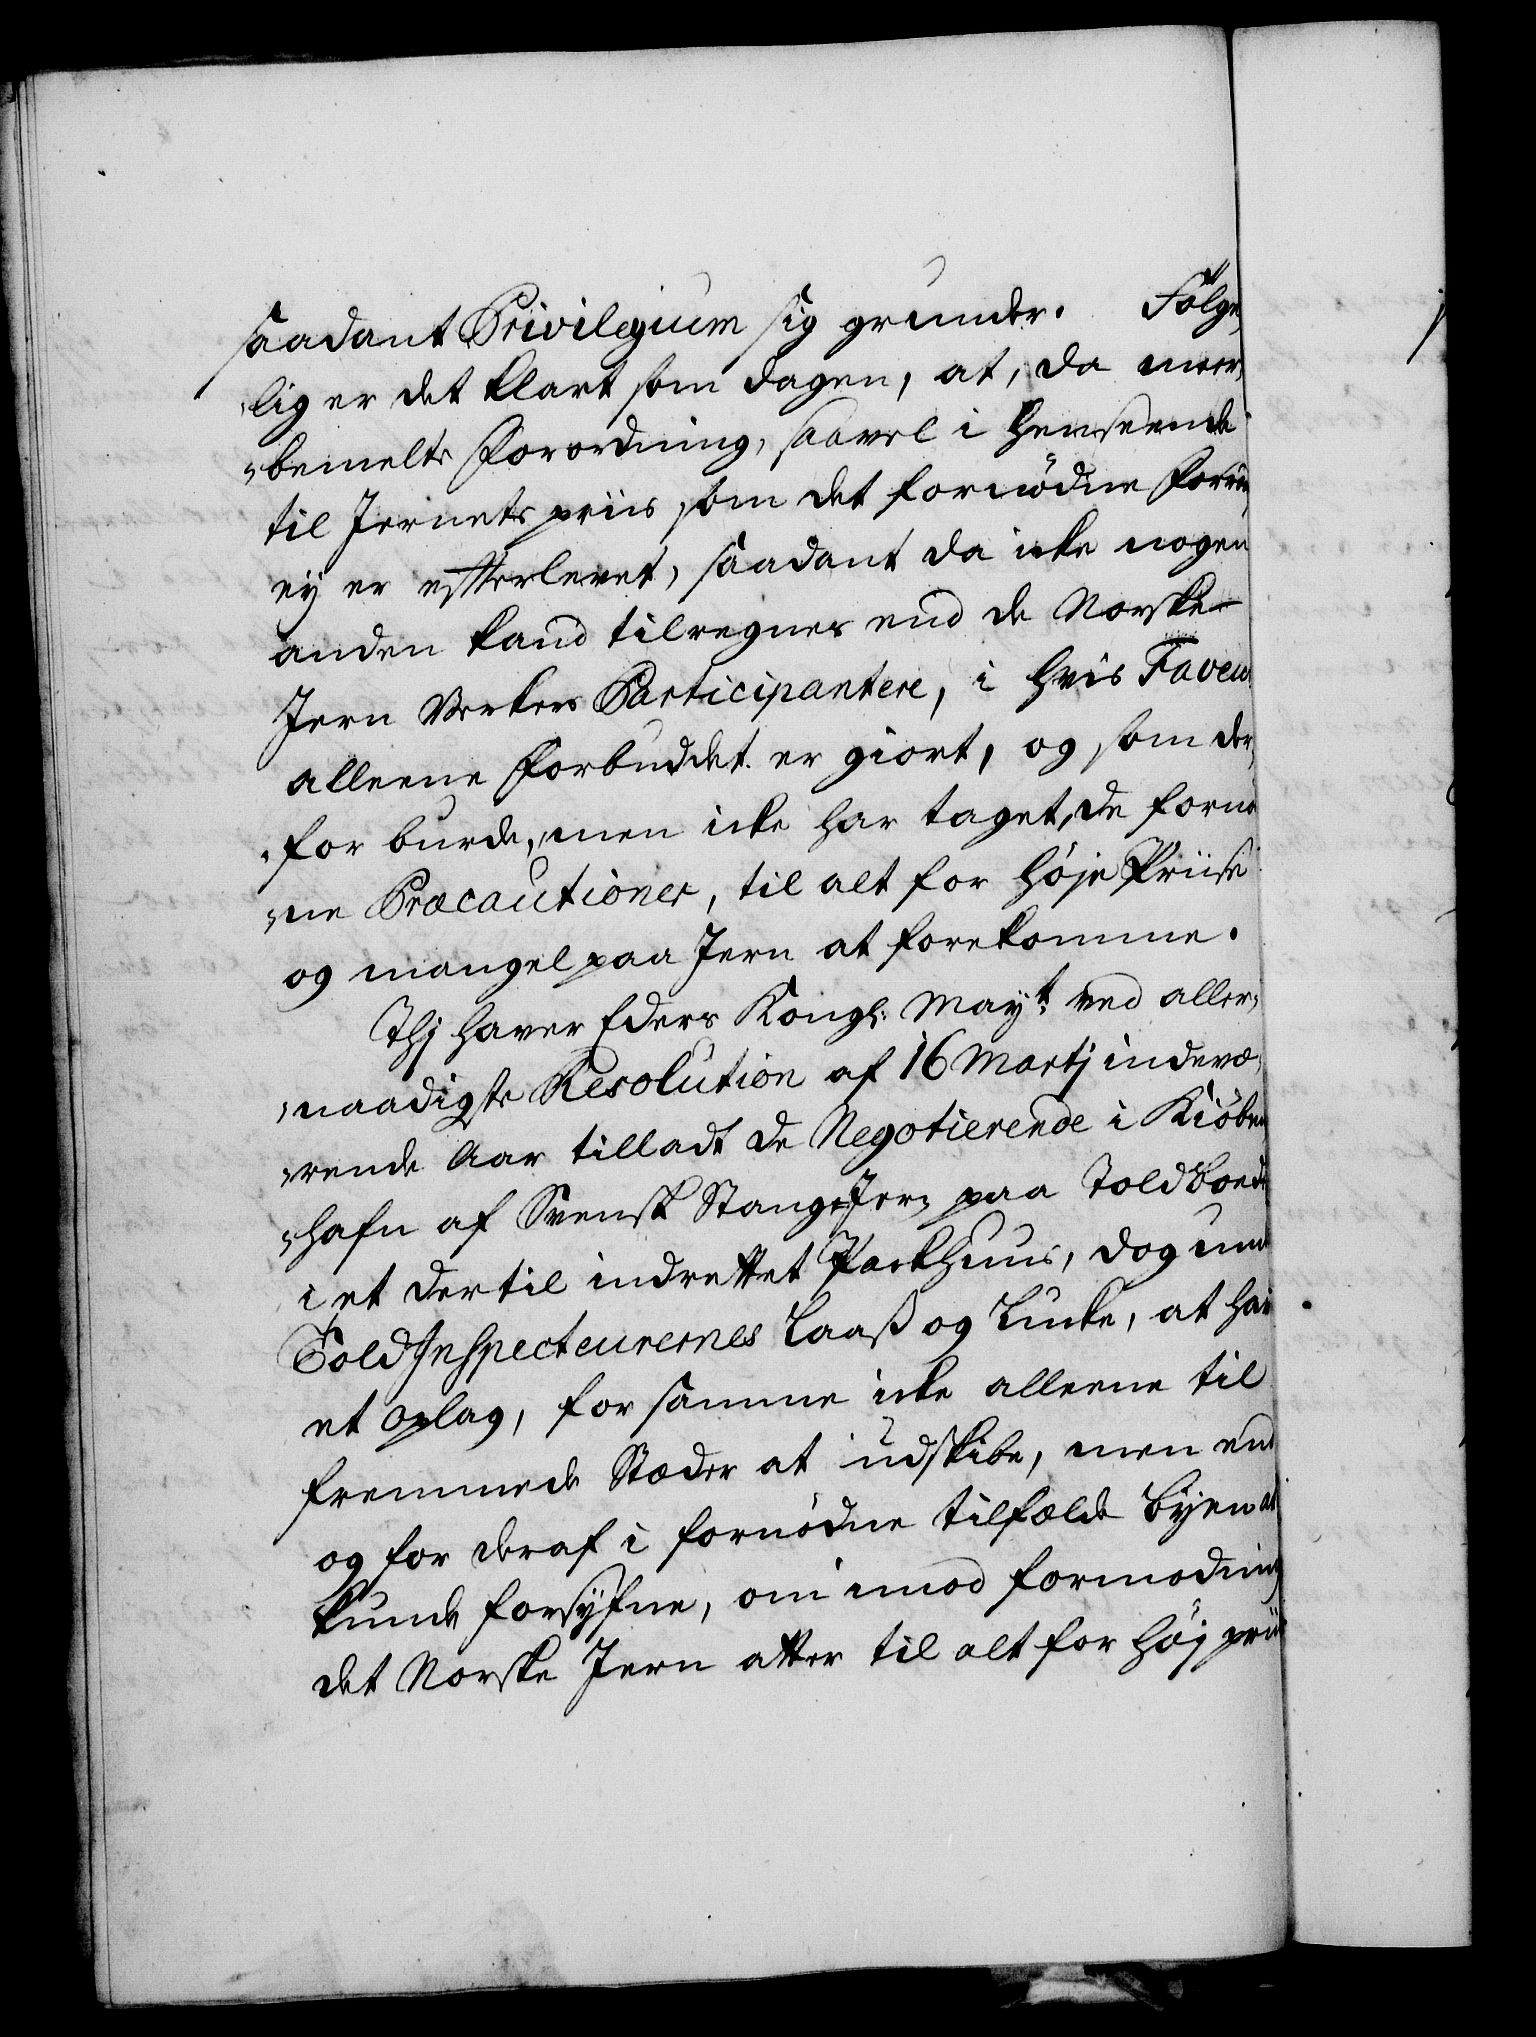 saadant Privilegium sig grunder. Følge,
„lig er det klart som dagen, at, da meer,
„bemelte Forordning, saavel i Henseende
til Jernets priis som det fornødne Forraad
ey er efterlevet, saadant da icke nogen
anden kand tilregnes end de Norske
Jern Verkers Participantere, i hvis Faveur
alleene Forbuddet er giort, og som der,
„for burde, men icke har taget, de fornø
„ne Præcautioner, til alt for høje Priise
og mangel paa Jern at forekomme.
Thj haver Eders Kongl: Mayt. ved aller,
„naadigste Resolution af 16 Martj indevæ,
„rende Aar tilladt de Negotierende i Kiøben
„hafn af Svensk Stang-Jern paa Toldboede
i et dertil indrettet Packhuus, dog under
ToldInspecteurernes Laaß og Lucke, at have
et Oplag, for samme icke alleene til
fremmede Stæder at udskibe, men end
og for deraf i fornødne tilfælde Byen at
kunde forsyfne, om imod formodning
det Norske Jern atter til alt for høj priis